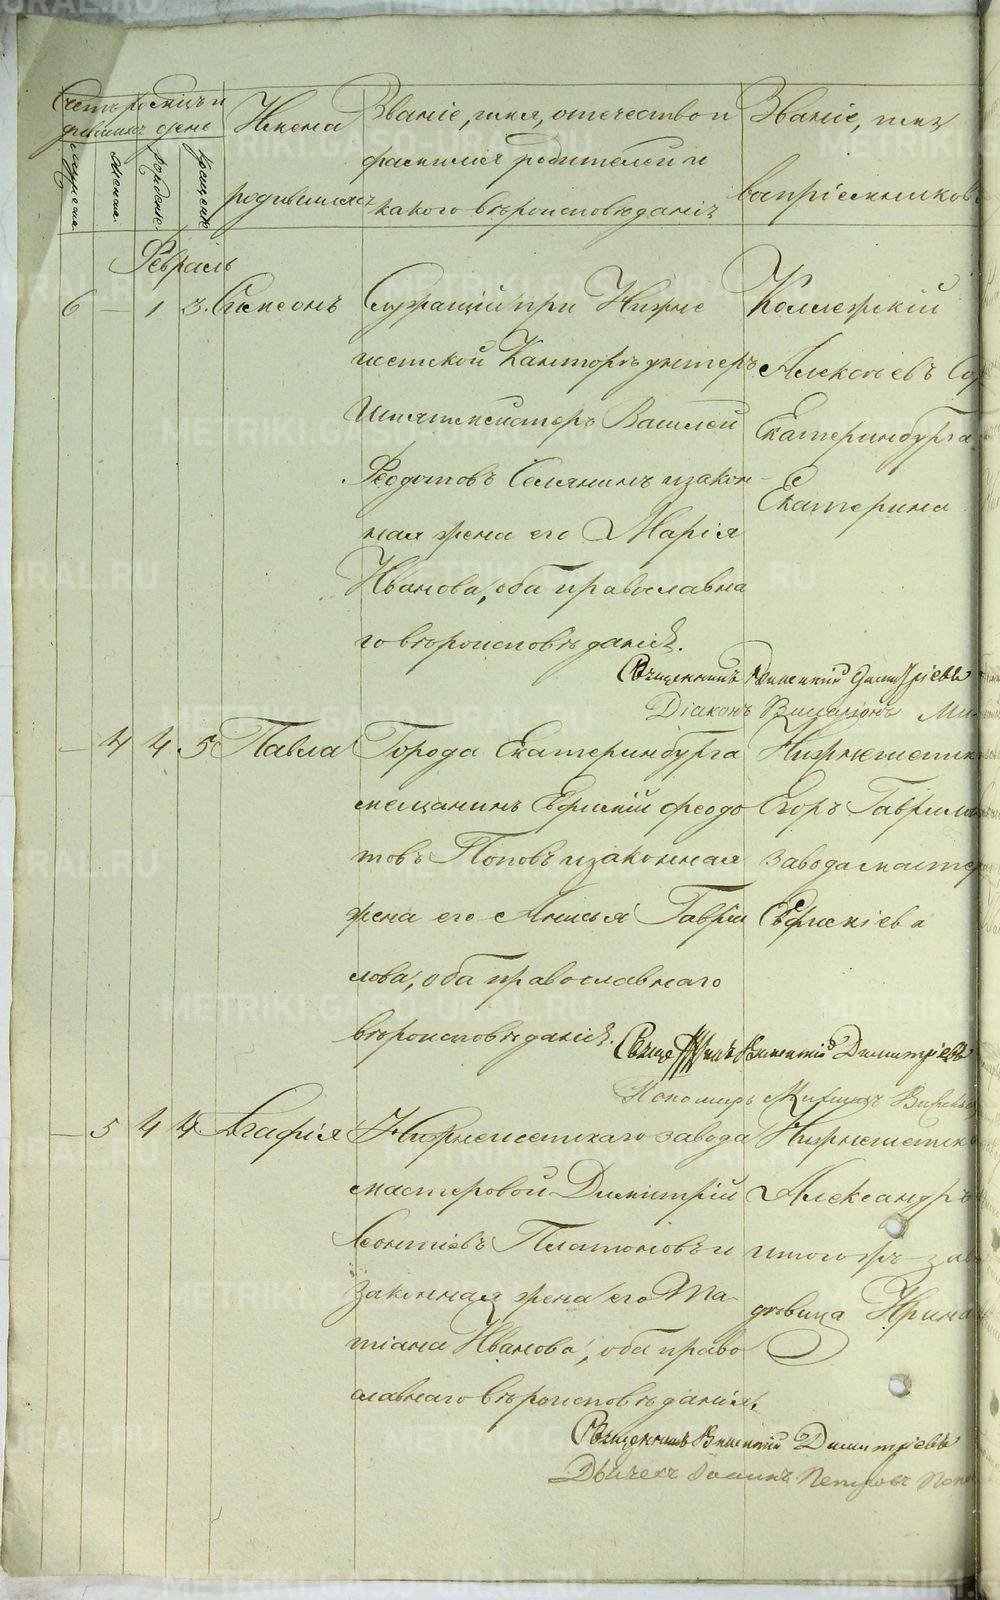 Счетъ родившихся
Месяцъ и день
Имена
родившихся
Званіе, имя, отечество и
фамилія родителей и
какого вѣроисповѣданія
Званіе, имя,
воспріемников
мужеска
женска
рожденіе
крещеніе
Февраль
6 — 1 3. Симеонъ
Служащій при Нижне
исетской Канторѣ унтеръ
Шихтмейстеръ Василей
Феодотовъ Селянинъ и закон-
ная жена его Марія
Иванова, оба православна
го вѣроисповѣданія.
Коллежскій
Алексѣевъ
Екатеринбурга
Екатерина
Священникъ Викентій Димитріевъ
Діаконъ Виссаріонъ
— 4 4 5 Павла
Города Екатеринбурга
мещанинъ Евфимій Феодо
товъ Поповъ и законная
жена его Анисья Гаврі
лова, оба православнаго
вѣроисповѣданія.
Нижнеисетск
Егоръ Гаврило
завода мастер
Евфиміева
Священникъ Викентій Димитріевъ
Пономарь
— 5 4 4 Агафія
Нижнеисетскаго завода
мастеровой Димитрій
Леонтіевъ Платоновъ и
законная жена его Та-
тіана Иванова, оба право
славнаго вѣроисповѣданія.
Нижнеисетско
Александръ
и того жъ зав
девица Ирина
Священникъ Викентій Димитріевъ
Дьячекъ Іоаннъ Петровъ Поп
METRIKI.GASO-URAL.RU